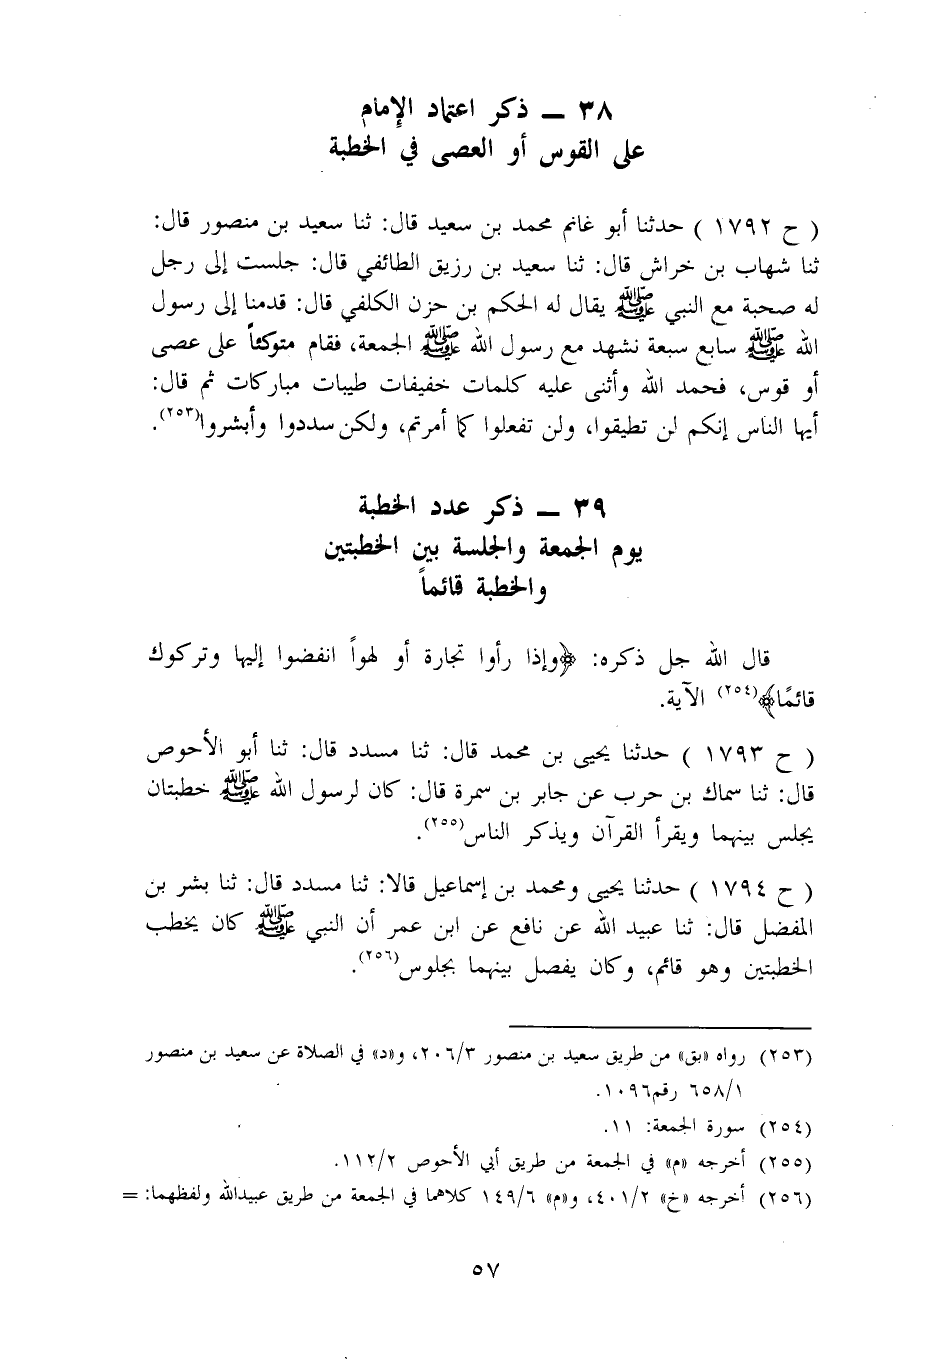 ٣٨ — ذكر اعتماد الإمام
على القوس أو العصى في الخطبة
( ح ١٧٩٢ ) حدثنا أبو غانم محمد بن سعيد قال: ثنا سعيد بن منصور قال:
ثنا شهاب بن خراش قال: ثنا سعيد بن رزيق الطائفي قال: جلست إلى رجل
له صحبة مع النبي ﷺ يقال له الحكم بن حزن الكلفي قال: قدمنا إلى رسول
الله ﷺ سابع سبعة نشهد مع رسول الله ﷺ الجمعة، فقام متوكئاً على عصى
أو قوس، فحمد الله وأثنى عليه كلمات خفيفات طيبات مباركات ثم قال:
أيها الناس إنكم لن تطيقوا، ولن تفعلوا كما أمرتم، ولكن سددوا وأبشروا(٢٥٣).
٣٩ — ذكر عدد الخطبة
يوم الجمعة والجلسة بين الخطبتين
والخطبة قائماً
قال الله جل ذكره: ﴿وإذا رأوا تجارة أو لهواً انفضوا إليها وتركوك
قائمًا﴾(٢٥٤) الآية.
( ح ١٧٩٣ ) حدثنا يحيى بن محمد قال: ثنا مسدد قال: ثنا أبو الأحوص
قال: ثنا سماك بن حرب عن جابر بن سمرة قال: كان لرسول الله ﷺ خطبتان
يجلس بينهما ويقرأ القرآن ويذكر الناس(٢٥٥).
( ح ١٧٩٤ ) حدثنا يحيى ومحمد بن إسماعيل قالا: ثنا مسدد قال: ثنا بشر بن
المفضل قال: ثنا عبيد الله عن نافع عن ابن عمر أن النبي ﷺ كان يخطب
الخطبتين وهو قائم، وكان يفصل بينهما بجلوس(٢٥٦).
(٢٥٣) رواه «بق» من طريق سعيد بن منصور ٢٠٦/٣، و«د» في الصلاة عن سعيد بن منصور
٦٥٨/١ رقم١٠٩٦.
(٢٥٤) سورة الجمعة: ١١.
(٢٥٥) أخرجه «م» في الجمعة من طريق أبي الأحوص ١١٢/٢.
(٢٥٦) أخرجه «خ» ٤٠١/٢، و«م» ١٤٩/٦ كلاهما في الجمعة من طريق عبيدالله ولفظهما: =
٥٧